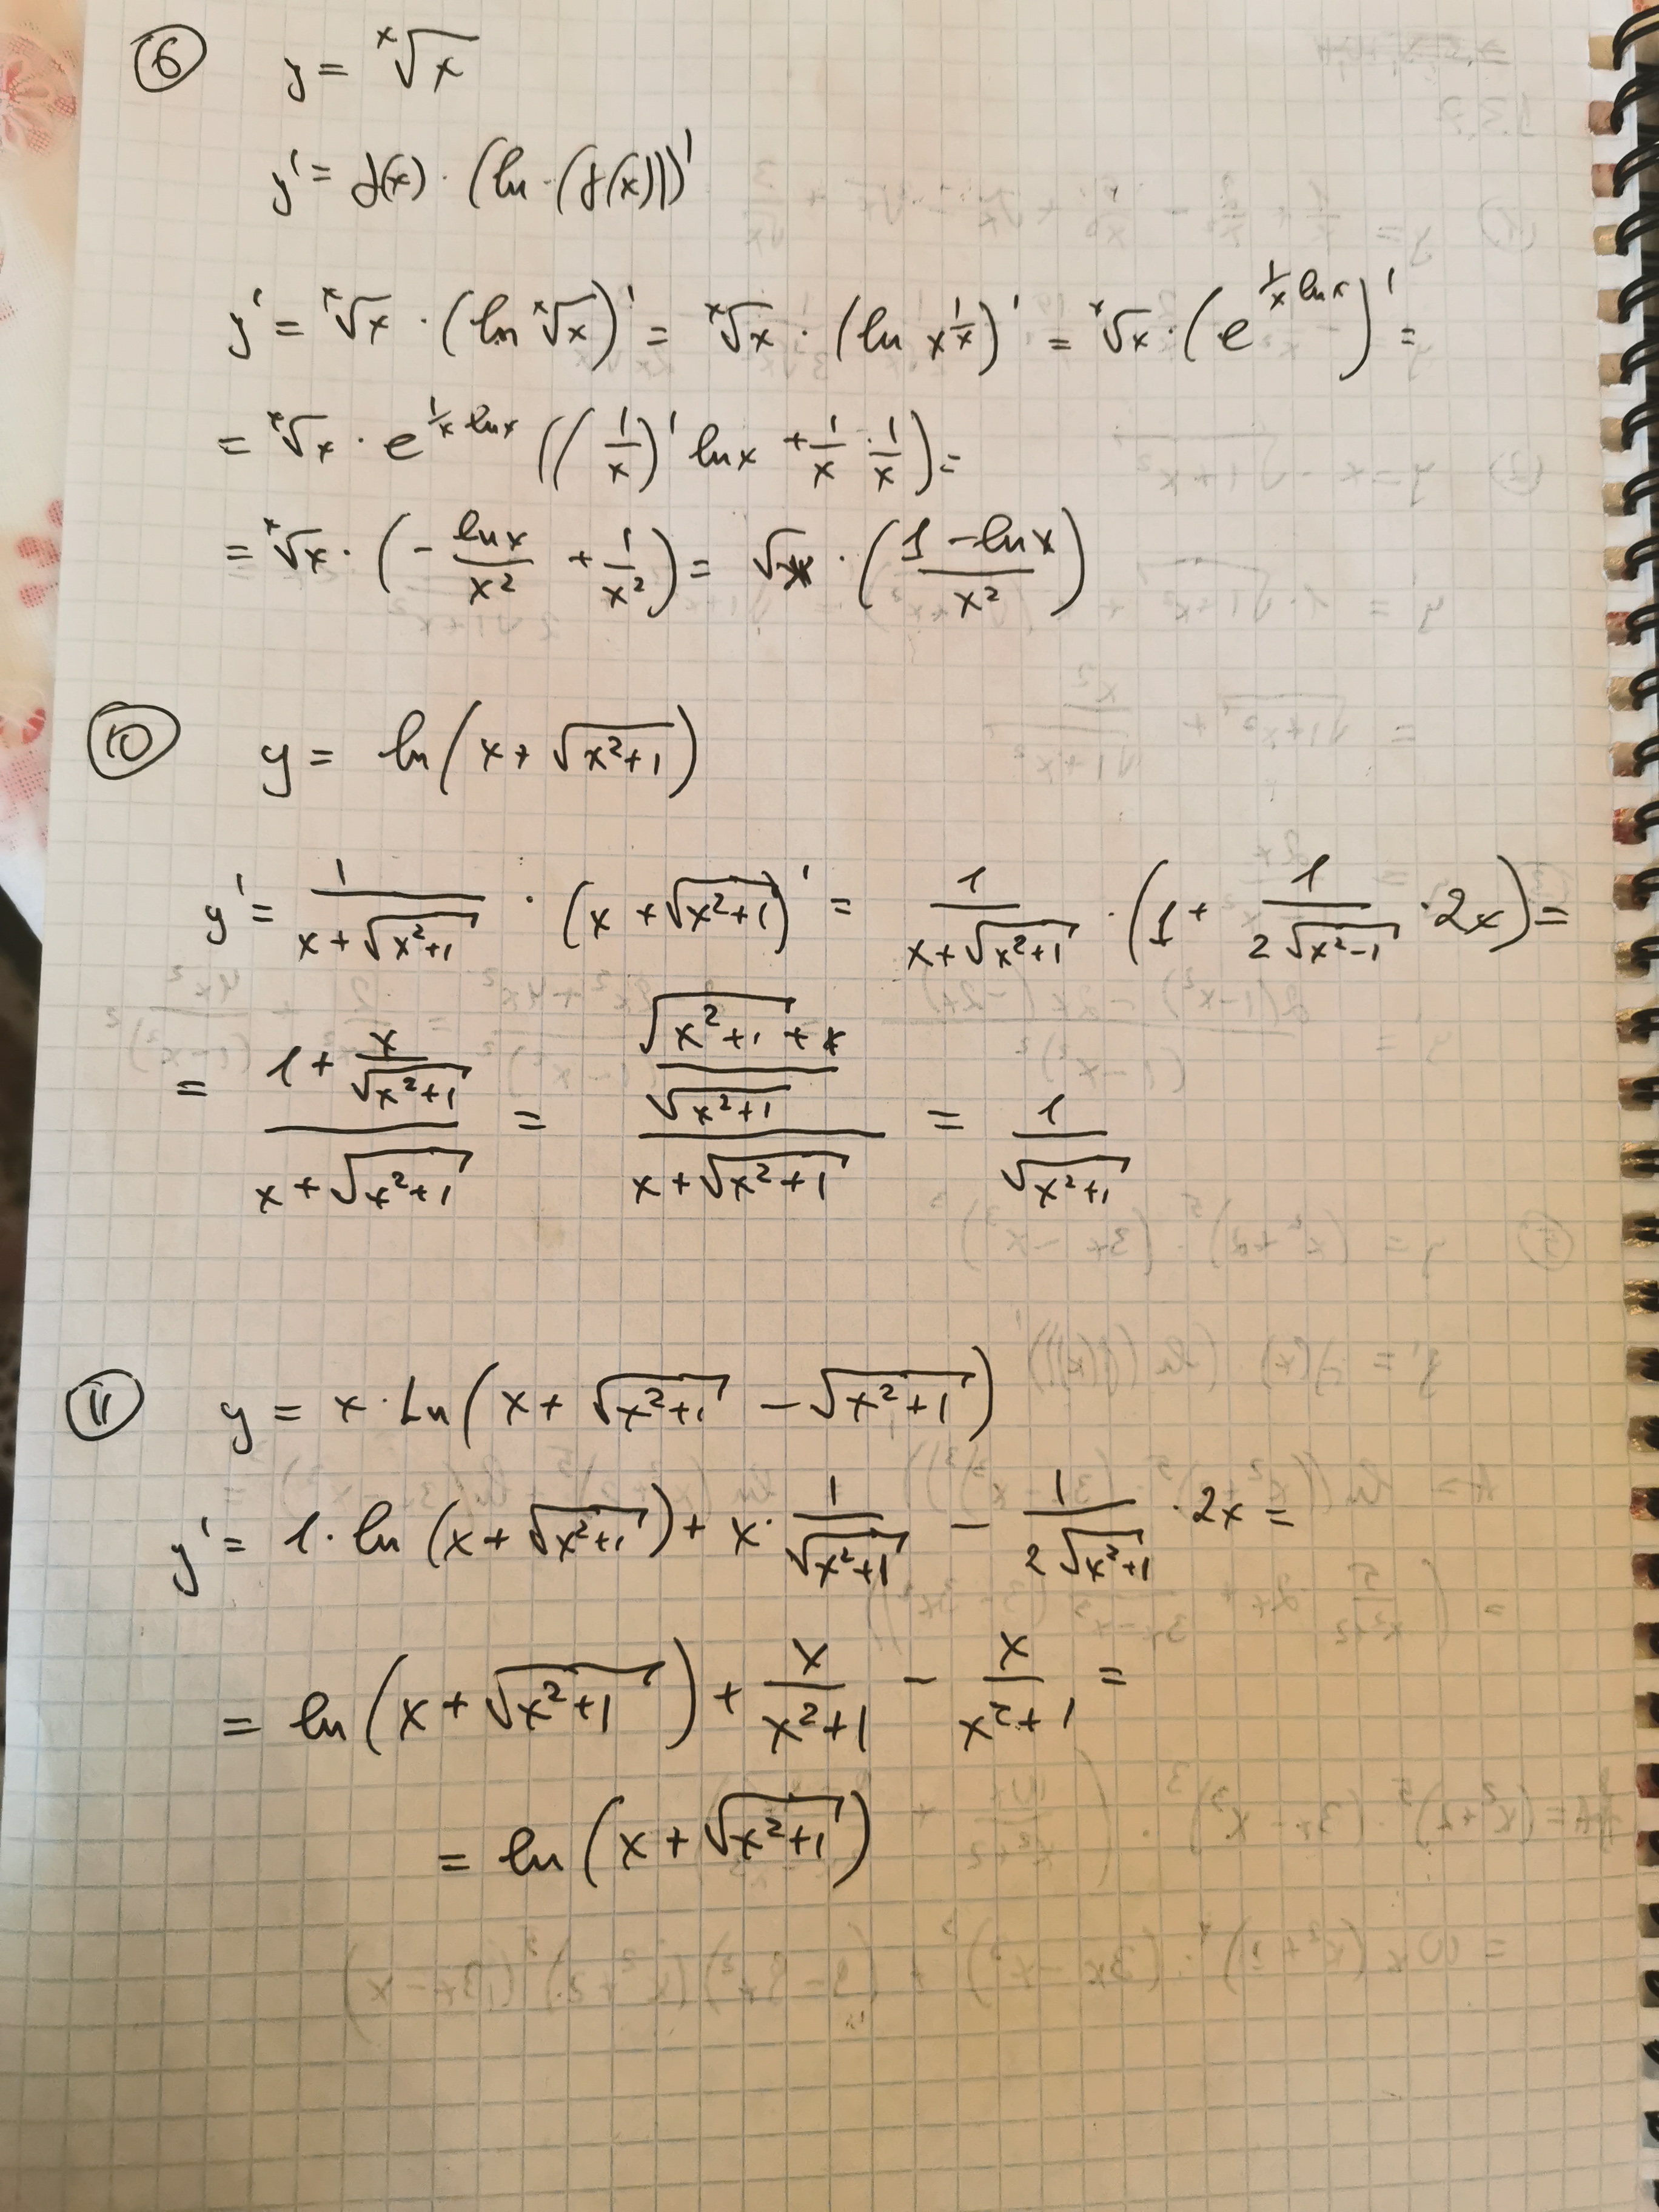 ⑥ y = ˣ√x
y' = f(x) · (ln · (f(x)))'
y' = ˣ√x · (ln ˣ√x)' = ˣ√x · (ln x^(1/x))' = ˣ√x · (e^(1/x · ln x))' =
= ˣ√x · e^(1/x · ln x) ((1/x)' ln x + 1/x · 1/x) =
= ˣ√x · (- ln x / x² + 1/x²) = √x · ((1 - ln x) / x²)
⑩ y = ln(x + √(x²+1))
y' = 1/(x + √(x²+1)) · (x + √(x²+1))' = 1/(x + √(x²+1)) · (1 + 1/(2√(x²-1)) · 2x) =
= (1 + x/√(x²+1))/(x + √(x²+1)) = ((√(x²+1) + x)/√(x²+1))/(x + √(x²+1)) = 1/√(x²+1)
⑪ y = x · Ln(x + √(x²+1) - √(x²+1))
y' = 1 · ln (x + √(x²+1)) + x · 1/√(x²+1) - 1/(2√(x²+1)) · 2x =
= ln(x + √(x²+1)) + x/(x²+1) - x/(x²+1) =
= ln(x + √(x²+1))